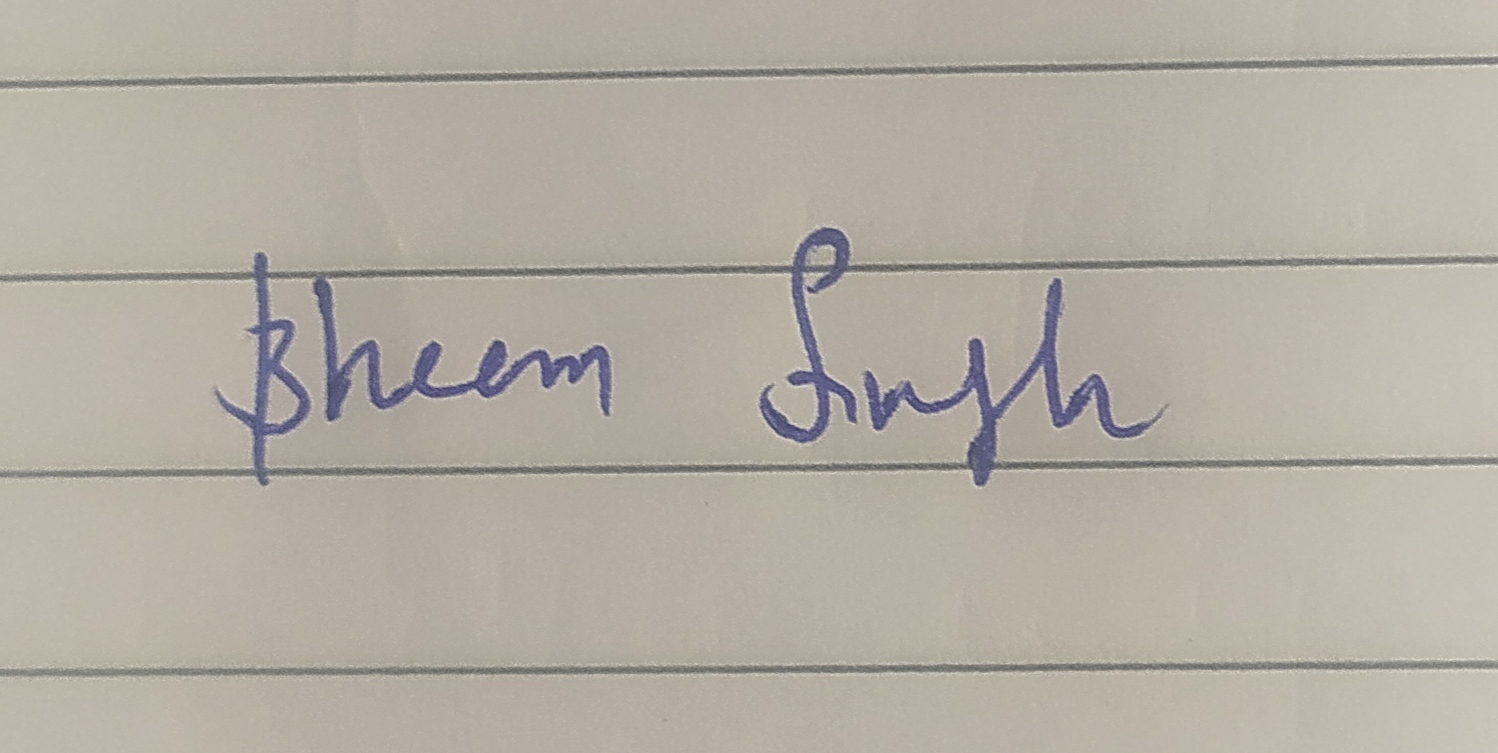 Bheem Singh